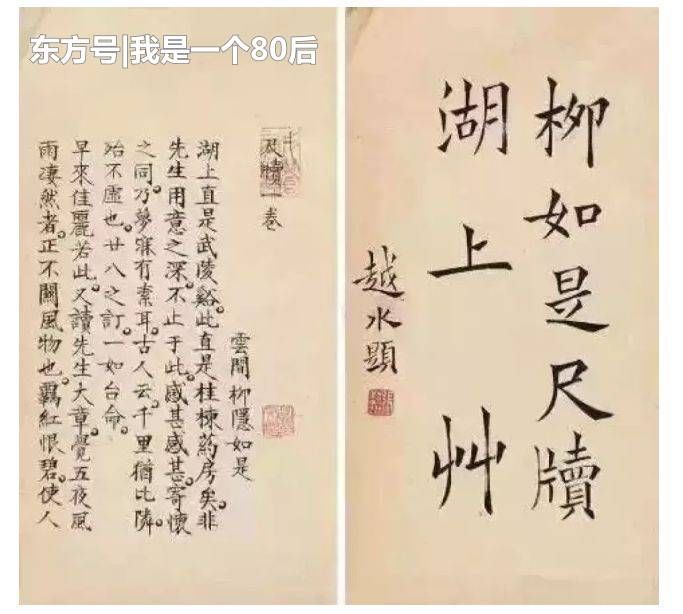 东方号|我是一个80后
柳如是尺牘
湖上艸
越水題
尺牘一卷
雲間柳隱如是
湖上直是武陵谿。此直是桂棟葯房矣。非
先生用意之深。不止于此。感甚感甚。寄懷
之同。乃夢寐有素耳。古人云。千里猶比隣。
殆不虛也。廿八之訂。一如台命。
早來佳麗若此。又讀先生大章。覺五夜風
雨凄然者。正不關風物也。羈紅恨碧。使人